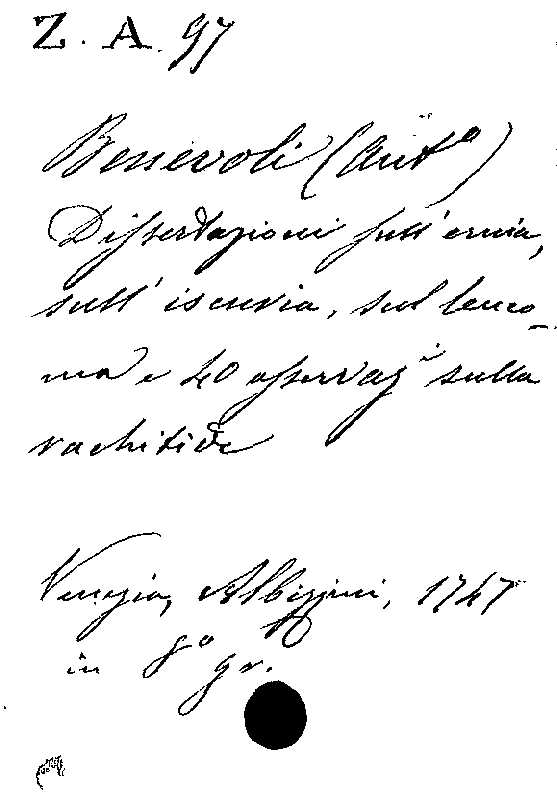 Z. A. 97
Benevoli (Ant.º)
Dissertazioni sull'ernia,
sull'iscuria, sul leuco-
ma e 40 osservazⁱ sulla
rachitide
Venezia, Albizzini, 1747
in 8º gr.